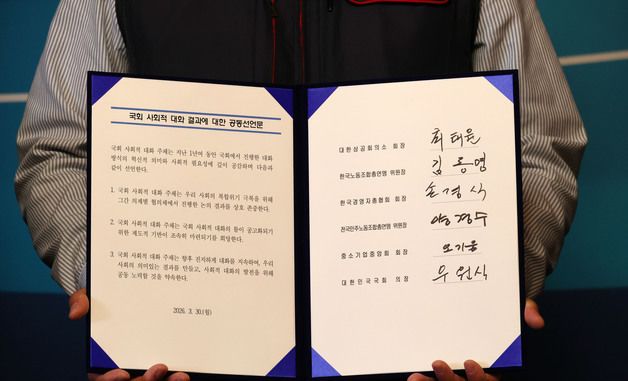 국회 사회적 대화 결과에 대한 공동선언문
국회 사회적 대화 주체는 지난 1년여 동안 국회에서 진행한 대화
방식의 혁신적 의미와 사회적 필요성에 깊이 공감하며 다음과
같이 선언한다.
1. 국회 사회적 대화 주체는 우리 사회의 복합위기 극복을 위해
그간 의제별 협의체에서 진행한 논의 결과를 상호 존중한다.
2. 국회 사회적 대화 주체는 국회 사회적 대화의 틀이 공고화되기
위한 제도적 기반이 조속히 마련되기를 희망한다.
3. 국회 사회적 대화 주체는 향후 진지하게 대화를 지속하여, 우리
사회의 의미있는 결과를 만들고, 사회적 대화의 발전을 위해
공동 노력할 것을 약속한다.
2026. 3. 30.(월)
대한상공회의소 회장 최태원
한국노동조합총연맹 위원장 김동명
한국경영자총협회 회장 손경식
전국민주노동조합총연맹 위원장 양경수
중소기업중앙회 회장
대한민국국회 의장 우원식